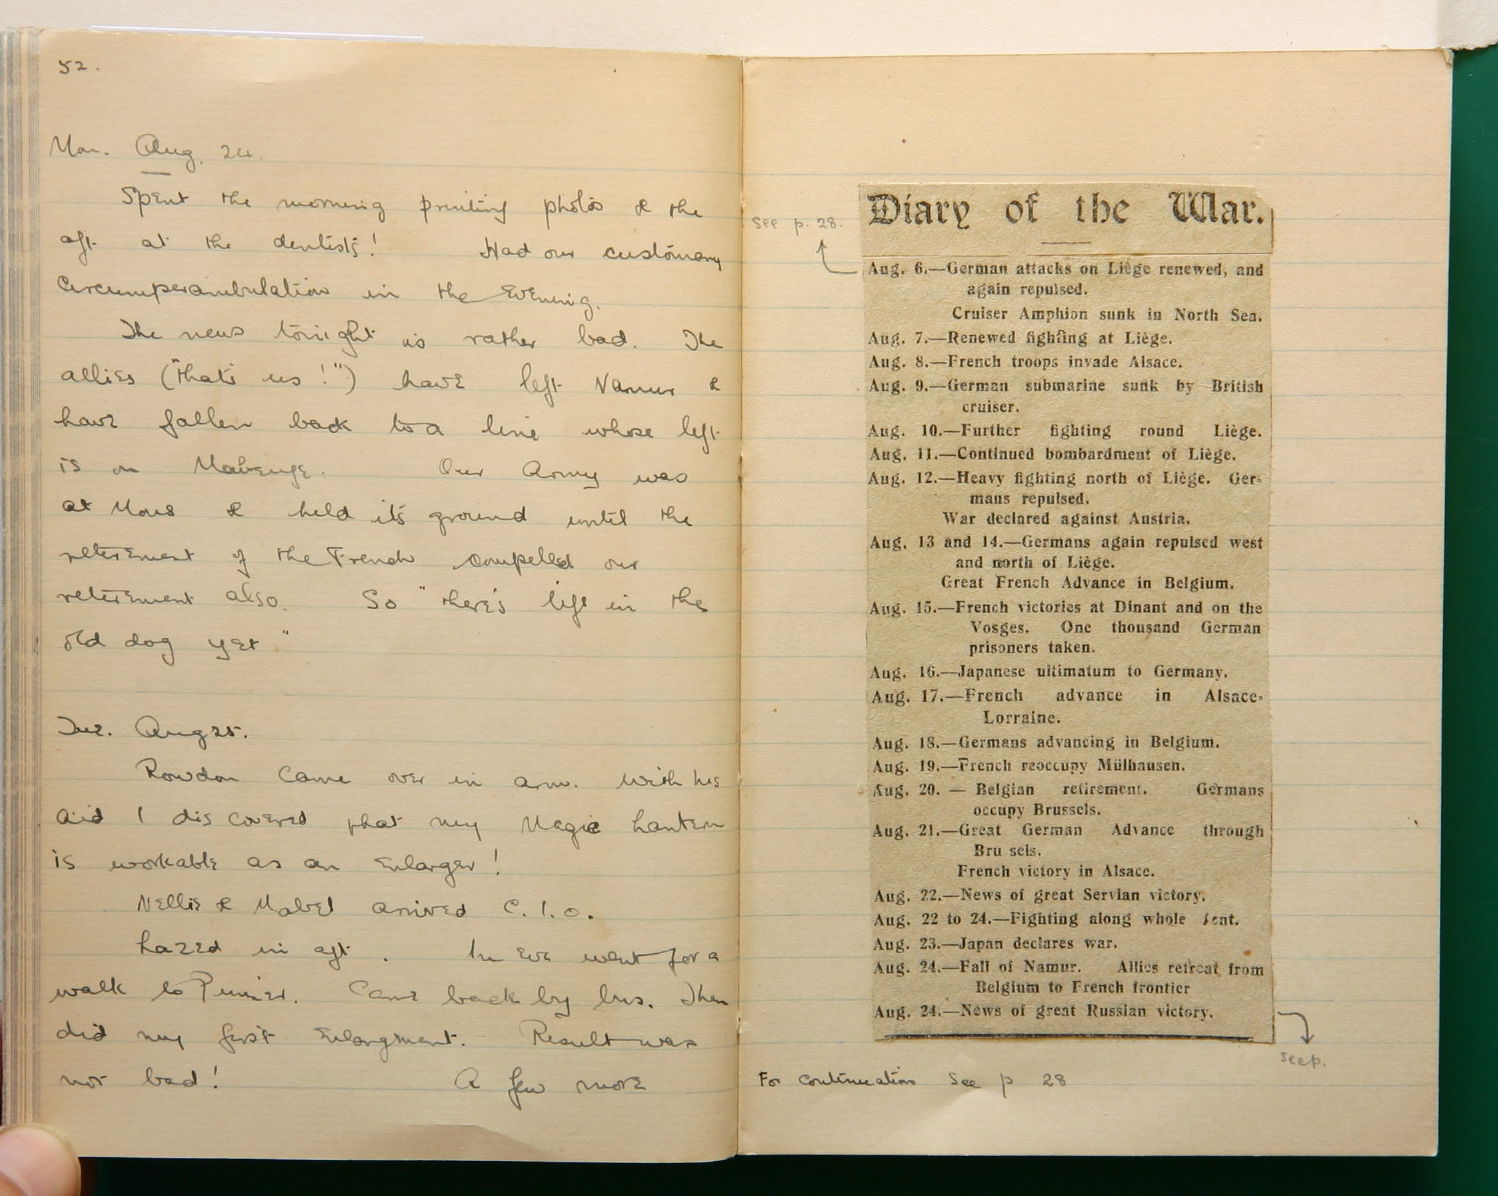 52.
Mon. Aug. 24.
Spent the morning printing photos & the
aft. at the dentists! Had our customary
circumperambulation in the Evening.
The news tonight is rather bad. The
allies ("that's us!") have left Namur &
have fallen back to a line whose left
is on Mabeuge. Our Army was
at Mons & held its ground until the
retirement of the French compelled our
retirement also. So "there's life in the
old dog yet"
Tue. Aug 25.
Rowdon came over in arm. With his
aid I discovered that my Magic Lantern
is workable as an Enlarger!
Nellie & Mabel arrived C.I.O.
Lazed in aft. In Eve went for a
walk to Pinner. Came back by bus. Then
did my first Enlargment. Result was
not bad! A few more
See p. 28.
Diary of the War.
Aug. 6.—German attacks on Liège renewed, and
again repulsed.
Cruiser Amphion sunk in North Sea.
Aug. 7.—Renewed fighting at Liège.
Aug. 8.—French troops invade Alsace.
Aug. 9.—German submarine sunk by British
cruiser.
Aug. 10.—Further fighting round Liège.
Aug. 11.—Continued bombardment of Liège.
Aug. 12.—Heavy fighting north of Liège. Ger-
mans repulsed.
War declared against Austria.
Aug. 13 and 14.—Germans again repulsed west
and north of Liège.
Great French Advance in Belgium.
Aug. 15.—French victories at Dinant and on the
Vosges. One thousand German
prisoners taken.
Aug. 16.—Japanese ultimatum to Germany.
Aug. 17.—French advance in Alsace-
Lorraine.
Aug. 18.—Germans advancing in Belgium.
Aug. 19.—French reoccupy Mülhausen.
Aug. 20. — Belgian retirement. Germans
occupy Brussels.
Aug. 21.—Great German Advance through
Bru sels.
French victory in Alsace.
Aug. 22.—News of great Servian victory.
Aug. 22 to 24.—Fighting along whole font.
Aug. 23.—Japan declares war.
Aug. 24.—Fall of Namur. Allies retreat from
Belgium to French frontier
Aug. 24.—News of great Russian victory.
See p.
For continuation See p 28